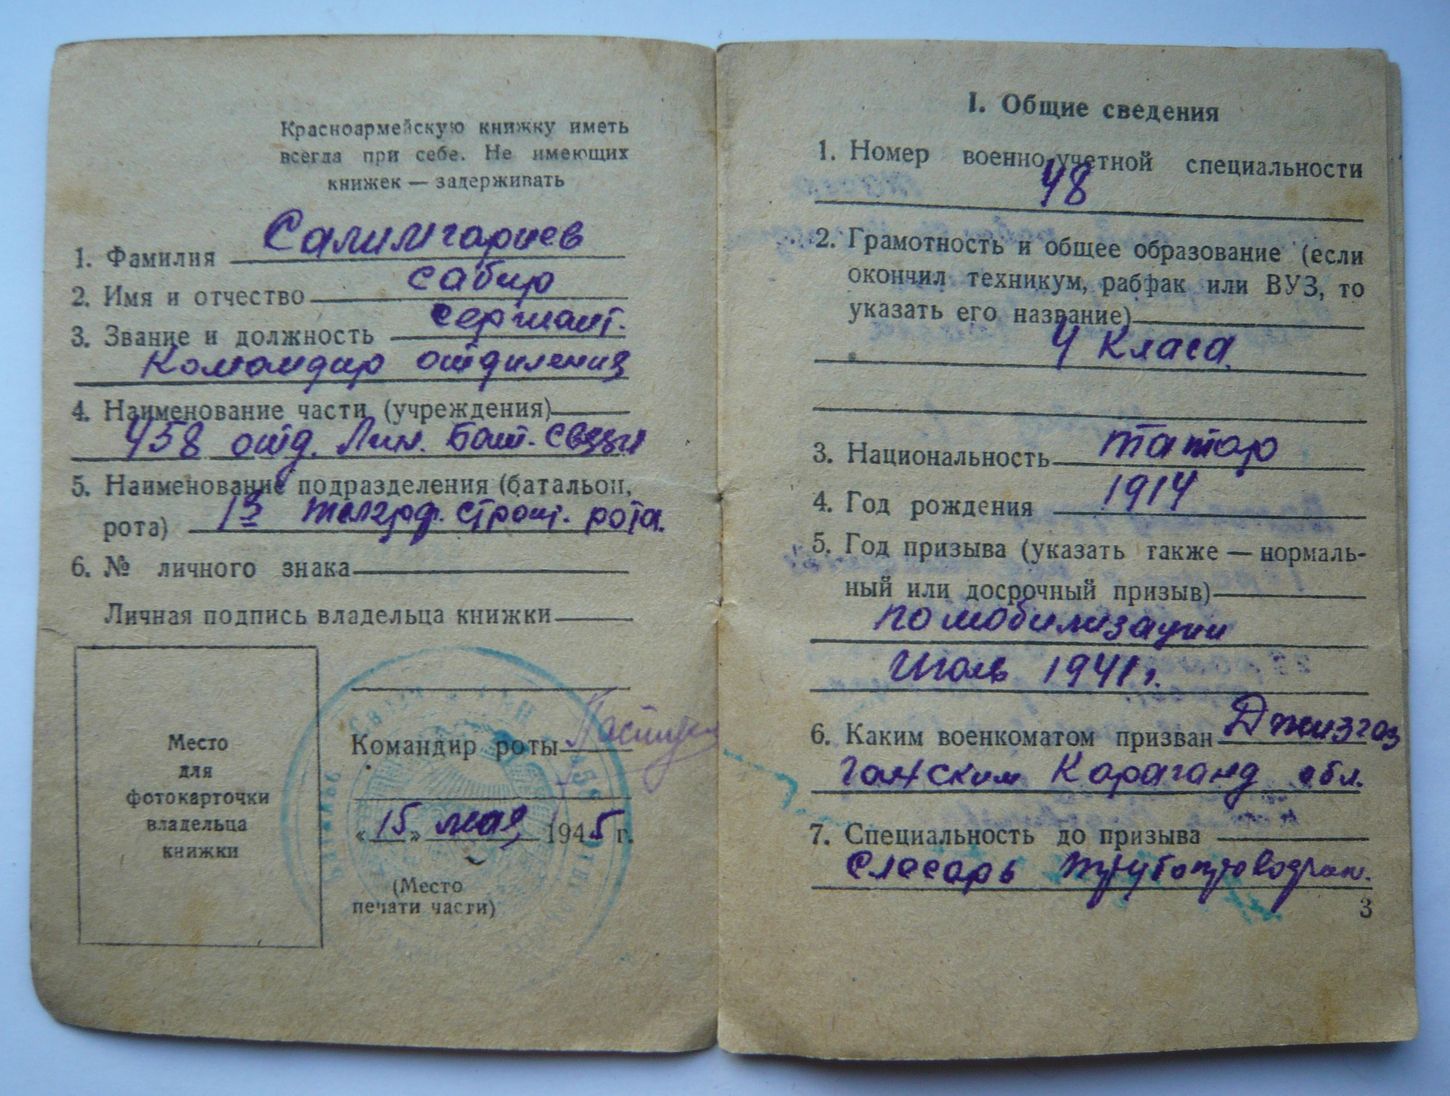 Красноармейскую книжку иметь
всегда при себе. Не имеющих
книжек — задерживать
1. Фамилия Салимгариев
2. Имя и отчество Сабир
3. Звание и должность сержант.
Командир отделения
4. Наименование части (учреждения)
458 отд. Лин. Бат. связи
5. Наименование подразделения (батальон,
рота) 13 телегрф. строит. рота.
6. № личного знака
Личная подпись владельца книжки
Место
для
фотокарточки
владельца
книжки
Командир роты
«15» мая 1945 г.
(Место
печати части)
I. Общие сведения
1. Номер военно-учетной специальности
48
2. Грамотность и общее образование (если
окончил техникум, рабфак или ВУЗ, то
указать его название)
4 класа.
3. Национальность татар
4. Год рождения 1914
5. Год призыва (указать также — нормаль-
ный или досрочный призыв)
по мобилизации
Июль 1941 г.
6. Каким военкоматом призван Джизгаз
ганским Караганд обл.
7. Специальность до призыва
слесарь трубопроводчик.
3